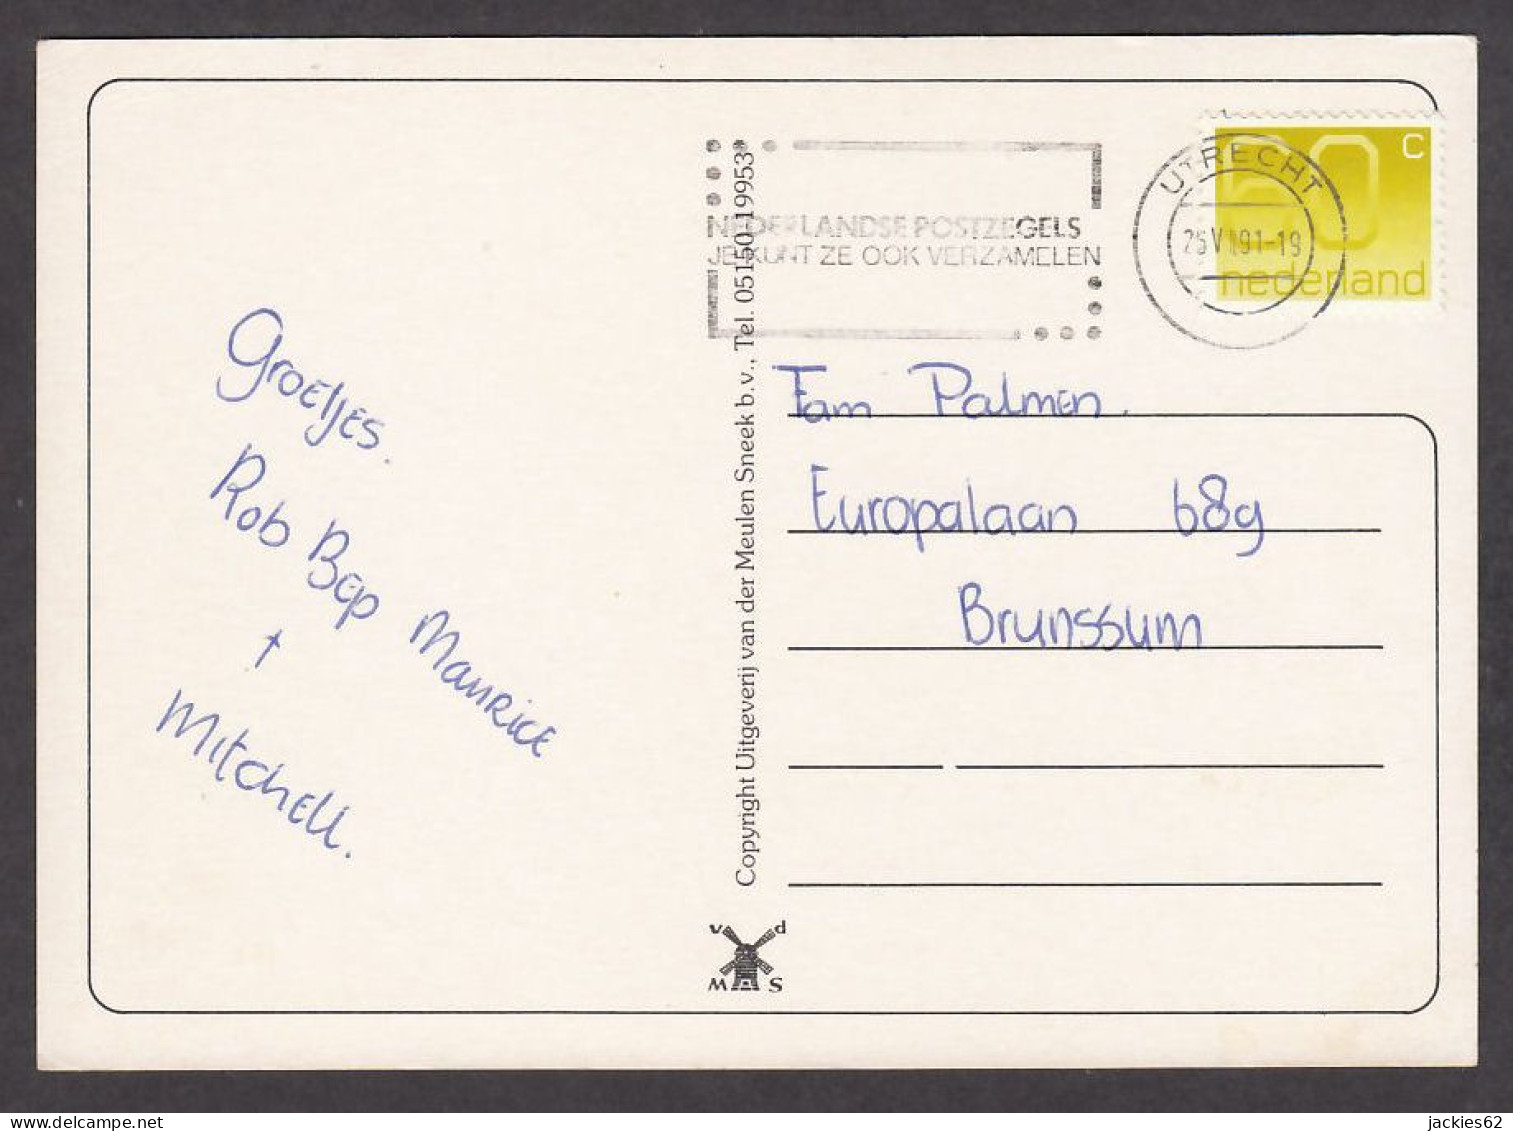 Groetjes.
Rob Bep Maurice
+
Mitchell.
Copyright Uitgeverij van der Meulen Sneek b.v., Tel. 05150-19953
v d
M S
NEDERLANDSE POSTZEGELS
JE KUNT ZE OOK VERZAMELEN
UTRECHT
91-19
60 c
nederland
Fam Palmen.
Europalaan 68g
Brunssum
delcampe.net
jackies62